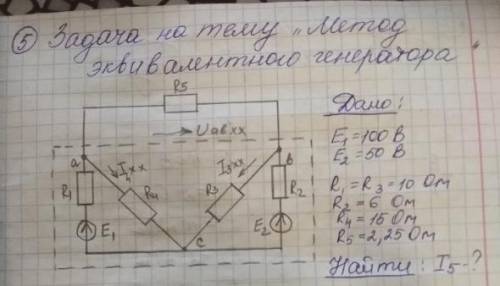 5 Задача на тему „Метод
эквивалентного генератора"
R5
Uabxx
a
I4xx
I3xx
b
R1
R4
R3
R2
E1
E2
c
Дано:
E1=100 В
E2=50 В
R1=R3=10 Ом
R2=6 Ом
R4=15 Ом
R5=2,25 Ом
Найти: I5-?